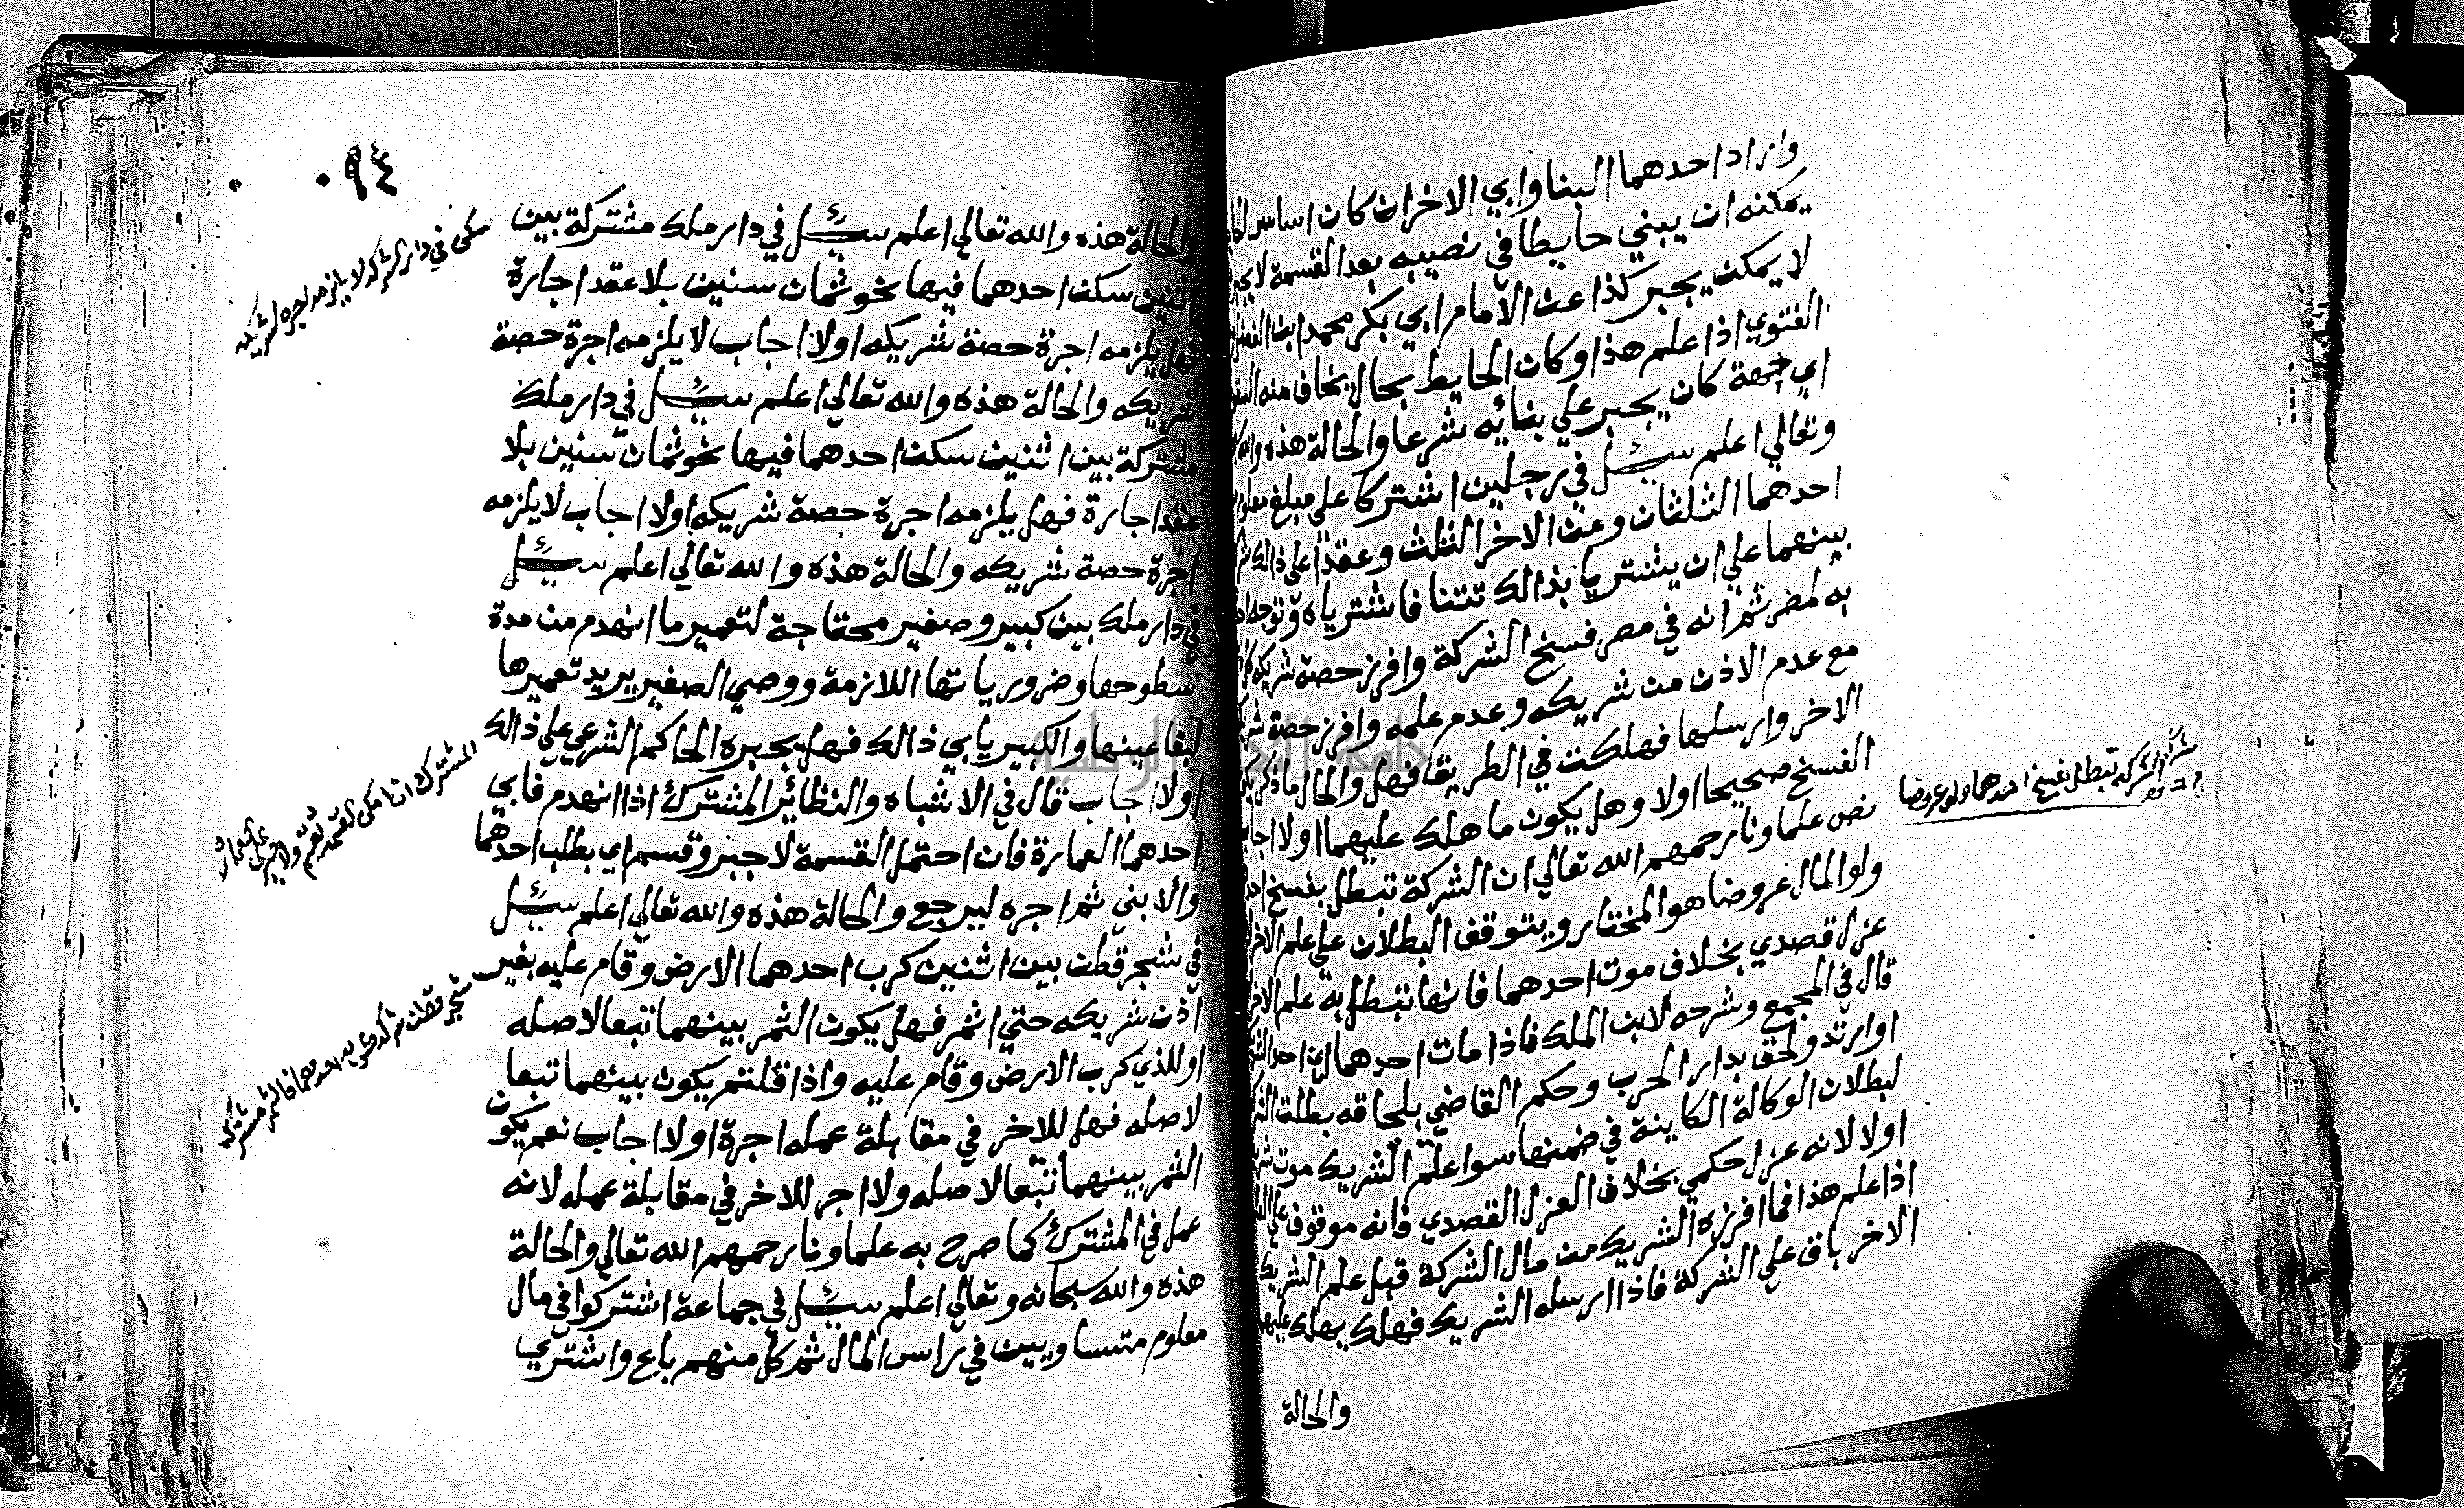 واراد احدهما البنا وابي الاخران كان اساس
يمكنه ان يبني حايطا في نصيبه بعد القسمة لا
لا يمكن يجبر كذا عن الامام ابي بكر محمد ابن الفضل
الفتوي اذا علم هذا وكان الحايط بحال يخاف منه
اي جهة كان يجبر علي بنائه شرعا والحالة هذه
وتعالي اعلم سئل في رجلين اشتركا علي مبلغ
احدهما الثلثان وعن الاخر الثلث وعقدا علي ذالك
بينهما علي ان يشتريا بذالك تتنا فاشترياه وتوجه
به لمصر ثم انه في مصر فسخ الشركة وافرز حصة شريكه
مع عدم الاذن من شريكه وعدم علمه وافرز حصة
الاخر وارسلها فهلكت في الطريق فهل والحال ما ذكر
الفسخ صحيحا اولا وهل يكون ما هلك عليهما اولا اجاب
نص علماونا رحمهم الله تعالي ان الشركة تبطل بفسخ
ولو المال عروضا هو المختار ويتوقف البطلان علي علم الاخر
عزل قصدي بخلاف موت احدهما فانها تبطل به علم
قال في المجمع وشرحه لابن الملك فاذا مات احدهما اي احد
او ارتد ولحق بدار الحرب وحكم القاضي بلحاقه بطلت
لبطلان الوكالة الكاينة في ضمنها سوا علم الشريك موت
اولا لانه عزل حكمي بخلاف العزل القصدي فانه موقوف علي
اذا علم هذا فما افرزه الشريك من مال الشركة قبل علم الشريك
الاخر باق علي الشركة فاذا ارسله الشريك فهلك يهلك عليهما
والحالة
الشركه تبطل بفسخ احدهما ولو عروضا
٩٤
والحالة هذه والله تعالي اعلم سئل في دار ملك مشتركة بين
اثنين سكن احدهما فيها نحو ثمان سنين بلا عقد اجارة
فهل يلزمه اجرة حصة شريكه اولا اجاب لا يلزمه اجرة حصة
شريكه والحالة هذه والله تعالي اعلم سئل في دار ملك
مشتركة بين اثنين سكن احدهما فيها نحو ثمان سنين بلا
عقد اجارة فهل يلزمه اجرة حصة شريكه اولا اجاب لا يلزمه
اجرة حصة شريكه والحالة هذه والله تعالي اعلم سئل
في دار ملك بين كبير وصغير محتاجة لتعمير ما انهدم من مدة
سطوحها وضرورياتها اللازمة ووصي الصغير يريد تعميرها
لبقا عينها والكبير يابي ذالك فهل يجبره الحاكم الشرعي علي ذالك
اولا اجاب قال في الاشباه والنظائر المشترك اذا انهدم فابي
احدهما العمارة فان احتمل القسمة لا جبر وقسم اي بطلب احدهما
والا بني ثم اجره ليرجع والحالة هذه والله تعالي اعلم سئل
في شجر قطن بين اثنين كرب احدهما الارض وقام عليه بغير
اذن شريكه حتي اثمر فهل يكون الثمر بينهما تبعا لاصله
او للذي كرب الارض وقام عليه واذا قلتم يكون بينهما تبعا
لاصله فهل للاخر في مقابلة عمله اجرة اولا اجاب نعم يكون
الثمر بينهما تبعا لاصله ولا اجر للاخر في مقابلة عمله لانه
عمل في المشترك كما صرح به علماونا رحمهم الله تعالي والحالة
هذه والله سبحانه وتعالي اعلم سئل في جماعة اشتركوا في مال
معلوم متساويين في راس المال ثم كل منهم باع واشتري
سكن في دار الشركه لا يلزمه اجره لشريكه
المشترك ان امكن القسمه
شجر قطن